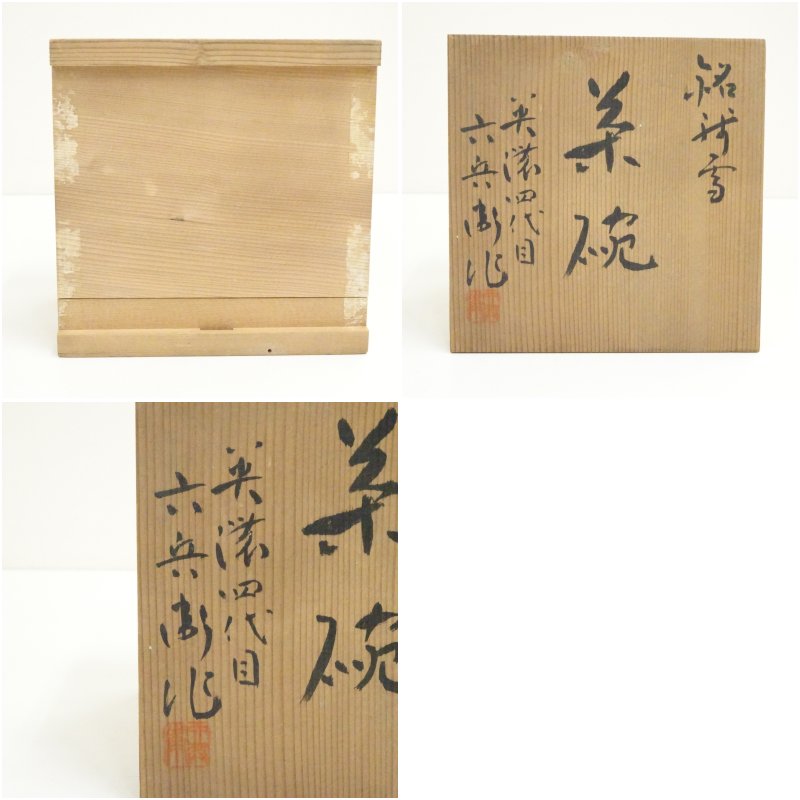 銘 雪
茶碗
美濃四代目
六兵衛作
茶碗
美濃四代目
六兵衛作